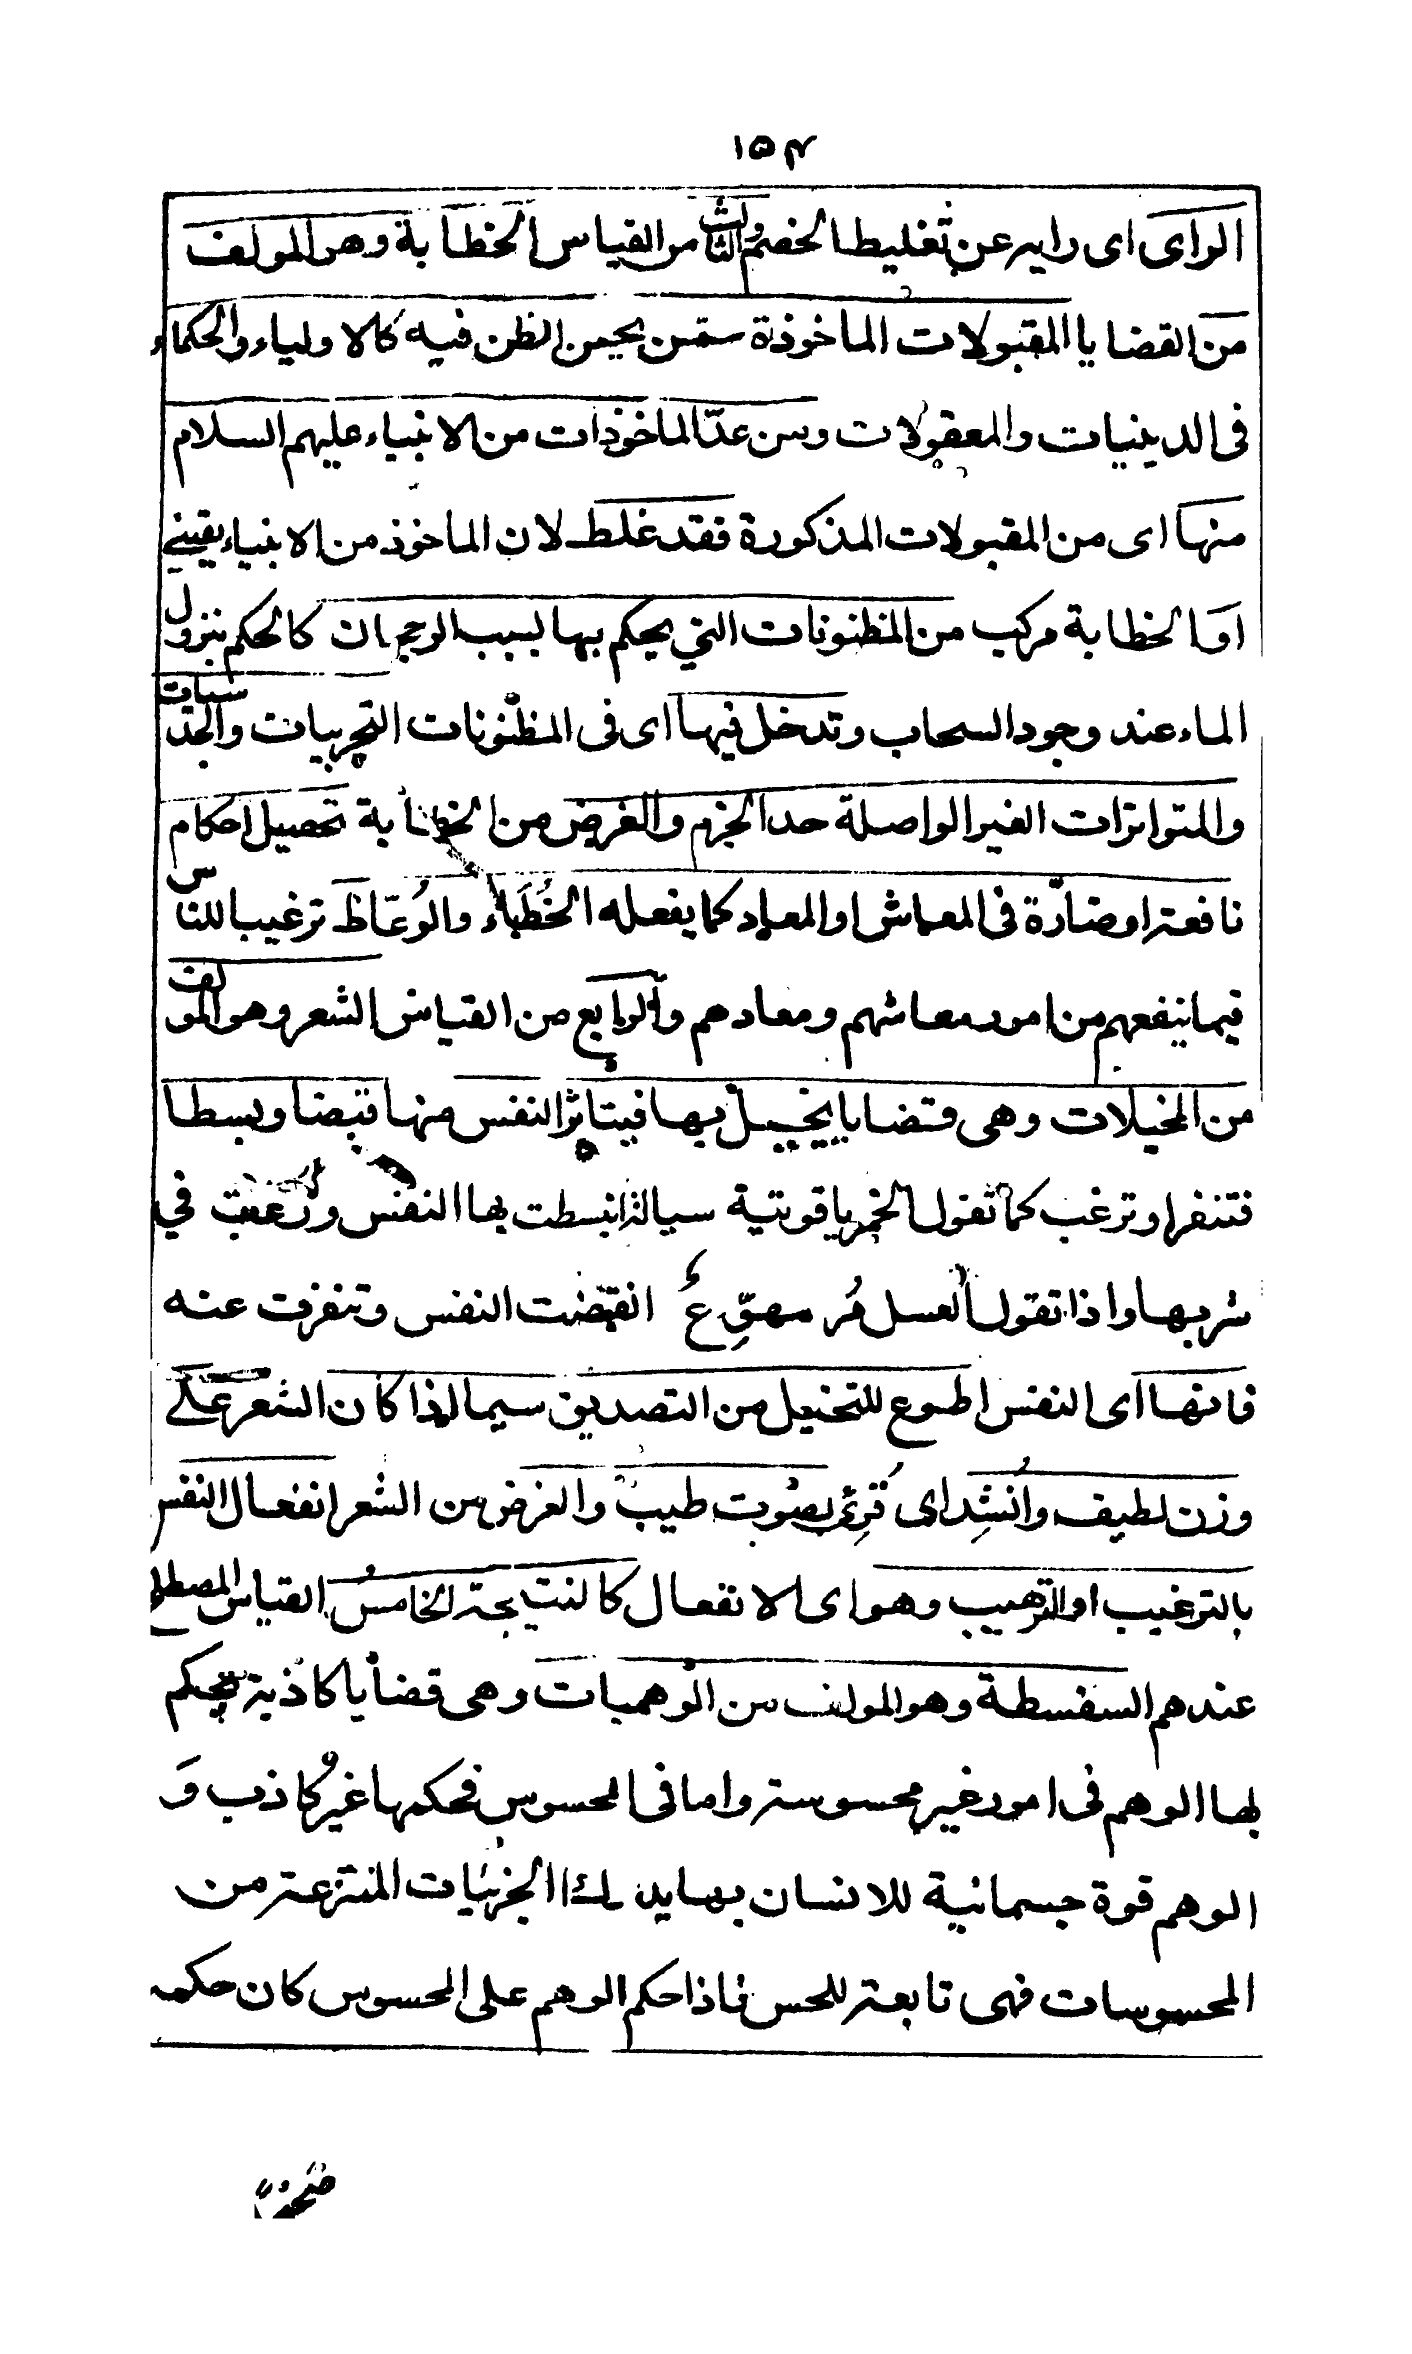 ١٥٤
الراى اى رايه عن تغليط الخصم والثالث من القياس الخطابة وهو المولف
من القضايا المقبولات الماخوذة ممّن يحسن الظن فيه كالاولياء والحكماء
فى الدينيات والمعقولات ومن عدّ الماخوذات من الانبياء عليهم السلام
منها اى من المقبولات المذكورة فقد غلط لان الماخوذ من الانبياء يقيني
او الخطابة مركب من المظنونات التي يحكم بها بسبب الرجحان كالحكم بنزول
الماء عند وجود السحاب وتدخل فيها اى فى المظنونات التجربيات والحدسيات
والمتواترات الغير الواصلة حد الجزم والغرض من الخطابة تحصيل احكام
نافعة او ضارّة فى المعاش او المعاد كما يفعله الخُطَباء والوُعّاظ ترغيبا للناس
فيما ينفعهم من امور معاشهم ومعادهم والرابع من القياس الشعر وهو المولف
من المخيلات وهى قضايا يخيل بها فيتاثر النفس منها قبضا وبسطا
فتنفر او ترغب كما تقول الخمر ياقوتية سيالة انبسطت بها النفس ورغبت في
شربها واذا تقول العسل مُر مهوّع انقبضت النفس وتنفرت عنه
فانها اى النفس اطوع للتخيل من التصديق سيما اذا كان الشعر على
وزن لطيف وانشد اى قرئ بصوت طيب والغرض من الشعر انفعال النفس
بالترغيب او الترهيب وهو اى الانفعال كالنتيجة الخامس القياس المصطلح
عندهم السفسطة وهو المولف من الوهميات وهى قضايا كاذبة يحكم
بها الوهم فى امور غير محسوسة واما فى المحسوس فحكمها غير كاذب وَ
الوهم قوة جسمانية للانسان بها يدرك الجزئيات المنتزعة من
المحسوسات فهى تابعة للحس فاذا حكم الوهم على المحسوس كان حكمه